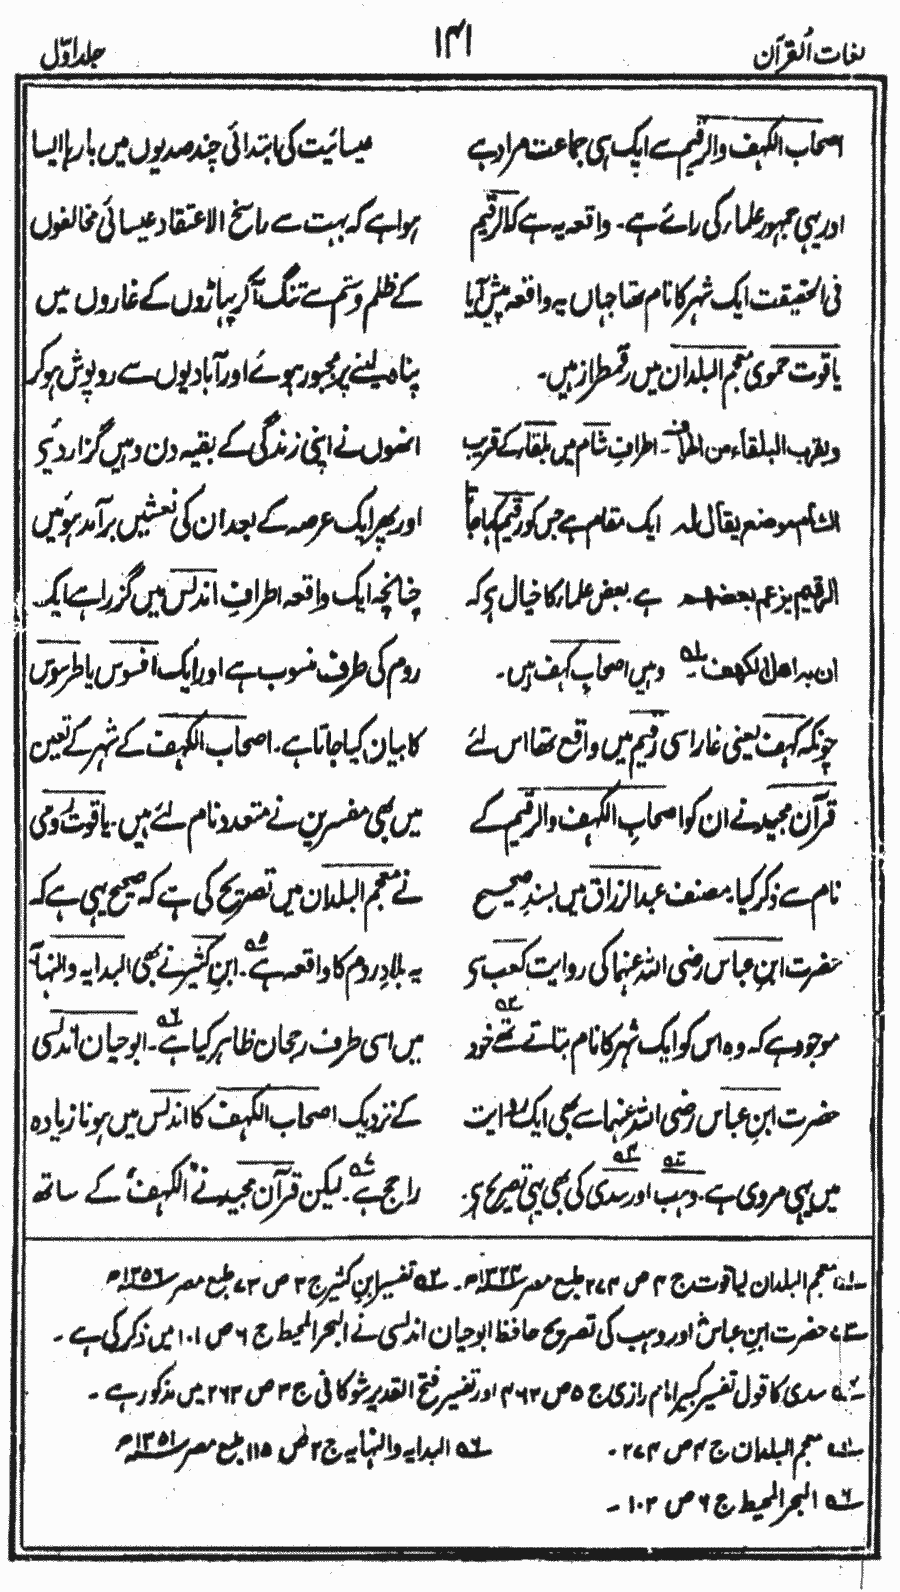 لغات القرآن
۱۴۱
جلد اوّل
اصحاب الکہف والرقیم سے ایک ہی جماعت مراد ہے
اور یہی جمہور علماء کی رائے ہے۔ واقعہ یہ ہے کہ الرقیم
فی الحقیقت ایک شہر کا نام تھا جہاں یہ واقعہ پیش آیا
یاقوت حموی معجم البلدان میں رقمطراز ہیں۔
وبقرب البلقاء من اطراف ۔ اطرافِ شام میں بلقاء کے قریب
الشام موضع یقال لہ ایک مقام ہے جس کو رقیم کہا جاتا
الرقیم یزعم بعضہم ہے۔ بعض علماء کا خیال ہے کہ
ان بہ اہل الکھف ۔ وہیں اصحابِ کہف ہیں۔
چونکہ کہف یعنی غار اسی رقیم میں واقع تھا اس لئے
قرآن مجید نے ان کو اصحابِ الکہف والرقیم کے
نام سے ذکر کیا۔ مصنف عبدالرزاق میں بسندِ صحیح
حضرت ابنِ عباس رضی اللہ عنہما کی روایت کعب سے
موجود ہے کہ وہ اس کو ایک شہر کا نام بتاتے تھے خود
حضرت ابنِ عباس رضی اللہ عنہما سے بھی ایک روایت
میں یہی مروی ہے۔ وہب اور سدی کی بھی یہی تصریح ہے۔
عیسائیت کی ابتدائی چند صدیوں میں بارہا ایسا
ہوا ہے کہ بہت سے راسخ الاعتقاد عیسائی مخالفوں
کے ظلم وستم سے تنگ آکر پہاڑوں کے غاروں میں
پناہ لینے پر مجبور ہوئے اور آبادیوں سے روپوش ہوکر
انھوں نے اپنی زندگی کے بقیہ دن وہیں گزار دئیے
اور پھر ایک عرصہ کے بعد ان کی نعشیں برآمد ہوئیں
چنانچہ ایک واقعہ اطرافِ اندلس میں گزرا ہے ایک
روم کی طرف منسوب ہے اور ایک افسوس یا طرسوس
کا بیان کیا جاتا ہے۔ اصحاب الکہف کے شہر کے تعین
میں بھی مفسرین نے متعدد نام لئے ہیں۔ یاقوت حموی
نے معجم البلدان میں تصریح کی ہے کہ صحیح یہی ہے کہ
یہ بلادِ روم کا واقعہ ہے ۵۔ ابنِ کثیر نے بھی البدایہ والنہایہ
میں اسی طرف رجحان ظاہر کیا ہے ۶۔ ابوحیان اندلسی
کے نزدیک اصحاب الکہف کا اندلس میں ہونا زیادہ
راجح ہے ۷۔ لیکن قرآن مجید نے "الکہف" کے ساتھ
۱ معجم البلدان لیاقوت ج ۴ ص ۲۷۴ طبع مصر ۱۳۲۴ھ۔ ۲ تفسیر ابنِ کثیر ج ۳ ص ۷۳ طبع مصر ۱۳۵۶ھ
۳ حضرت ابنِ عباسؓ اور وہب کی تصریح حافظ ابوحیان اندلسی نے البحر المحیط ج ۶ ص ۱۰۱ میں ذکر کی ہے۔
۴ سدی کا قول تفسیر کبیر امام رازی ج ۵ ص ۴۶۳ اور تفسیر فتح القدیر شوکانی ج ۳ ص ۲۶۳ میں مذکور ہے۔
معجم البلدان ج ۴ ص ۲۷۴۔ ۵ البدایہ والنہایہ ج ۲ ص ۱۱۵ طبع مصر ۱۳۵۱ھ
۶ البحر المحیط ج ۶ ص ۱۰۲۔